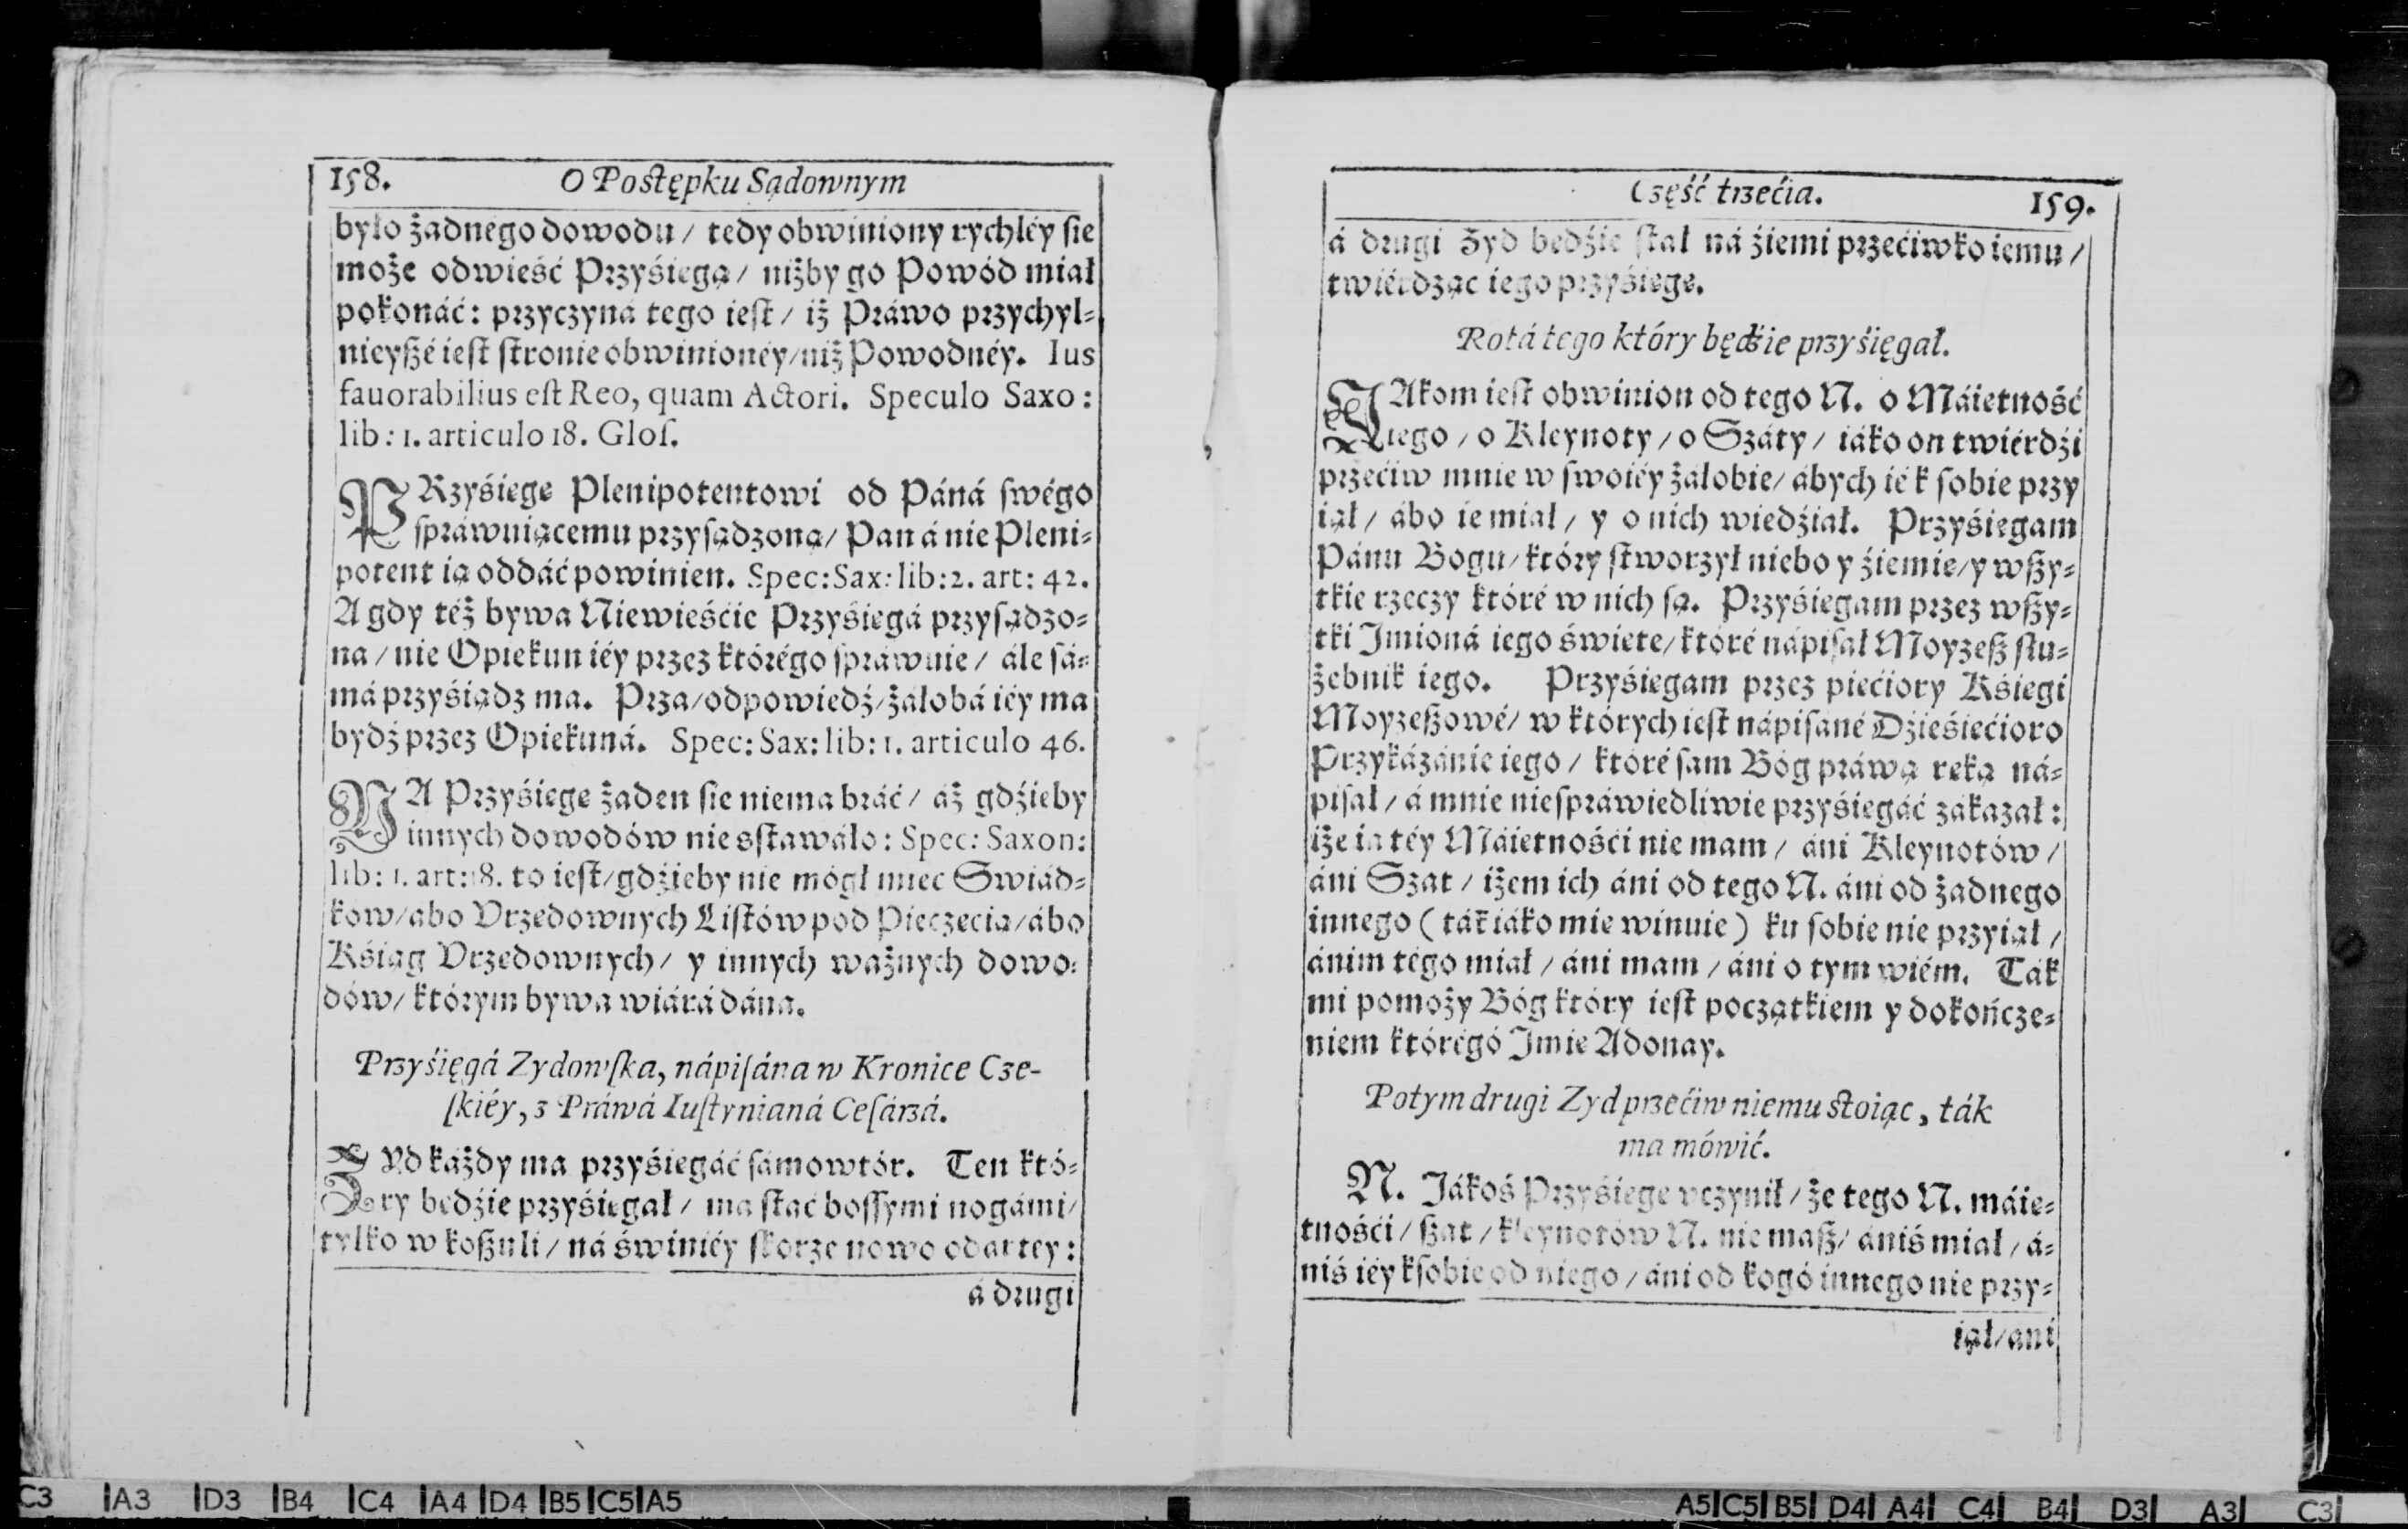 158. O Postępku Sądownym
było żadnégo dowodu / tedy obwiniony rychléy sie
może odwieść Przyśięgą / niżby go Powód miał
pokonáć: przyczyná tego iest / iż Práwo przychyl-
nieyszé iest stronie obwinionéy / niż Powodnéy. Ius
fauorabilius est Reo, quam Actori. Speculo Saxo:
lib: 1. articulo 18. Glos.
PRzyśięgę Plenipotentowi od Páná swégo
spráwuiącemu przysądzoną / Pan á nie Pleni-
potent ią oddáć powinien. Spec: Sax: lib: 2. art: 42.
A gdy téż bywa Niewieśćie Przyśięgá przysądzo-
na / nie Opiekun iéy przez którégo spráwuie / ále sá-
má przyśiądz ma. Prza / odpowiedź / żáłobá iéy ma
bydź przez Opiekuná. Spec: Sax: lib: 1. articulo 46.
NA Przyśięgę żaden sie niema bráć / áż gdźieby
innych dowodów nie sstawáło: Spec: Saxon:
lib: 1. art: 18. to iest / gdźieby nie mógł mieć Swiád-
ków / ábo Vrzędownych Listów pod Pieczęcią / ábo
Kśiąg Vrzędownych / y innych ważnych dowo-
dów / którym bywa wiárá dána.
Przyśięgá Zydowska, nápisána w Kronice Cze-
skiéy, z Práwá Iustynianá Cesárzá.
ZYd każdy ma przyśięgáć sámowtór. Ten któ-
ry będźie przyśięgał / ma stać bossymi nogámi /
tylko w koszuli / ná świniéy skorze nowo odartey:
á drugi
Część trzećia. 159.
á drugi Żyd będźie stał ná źiemi przećiwko iemu /
twiérdząc iego przyśięgę.
Rotá tego który będźie przyśięgał.
IAkom iest obwinion od tego N. o Máiętność
iego / o Kleynoty / o Száty / iáko on twiérdźi
przećiw mnie w swoiéy żáłobie / ábych ié k sobie przy
iął / ábo ie miał / y o nich wiedźiał. Przyśięgam
Pánu Bogu / który stworzył niebo y źiemię / y wszy-
tkie rzeczy któré w nich są. Przyśięgam przez wszy-
tki Imioná iego święte / któré nápisał Moyzesz słu-
żebnik iego. Przyśięgam przez pięćiory Kśięgi
Moyzeszowé / w których iest nápisáné Dźieśięćioro
Przykázánie iego / któré sam Bóg práwą ręką ná-
pisał / á mnie niespráwiedliwie przyśięgáć zákazał:
iże ia téy Máiętnośći nie mam / áni Kleynotów /
áni Szat / iżem ich áni od tego N. áni od żadnego
innego (ták iáko mie winuie) ku sobie nie przyiął /
ánim tégo miał / áni mam / áni o tym wiém. Ták
mi pomoży Bóg który iest początkiem y dokończe-
niem którégó Imię Adonay.
Potym drugi Zyd przećiw niemu stoiąc, ták
ma mówić.
N. Jákoś Przyśięgę vczynił / że tego N. máię-
tnośći / szat / kleynotów N. nie masz / ániś miał / á-
niś iéy k sobie od niego / áni od kogó innego nie przy-
iął / ani
C3 A3 D3 B4 C4 A4 D4 B5 C5 A5
A5 C5 B5 D4 A4 C4 B4 D3 A3 C3